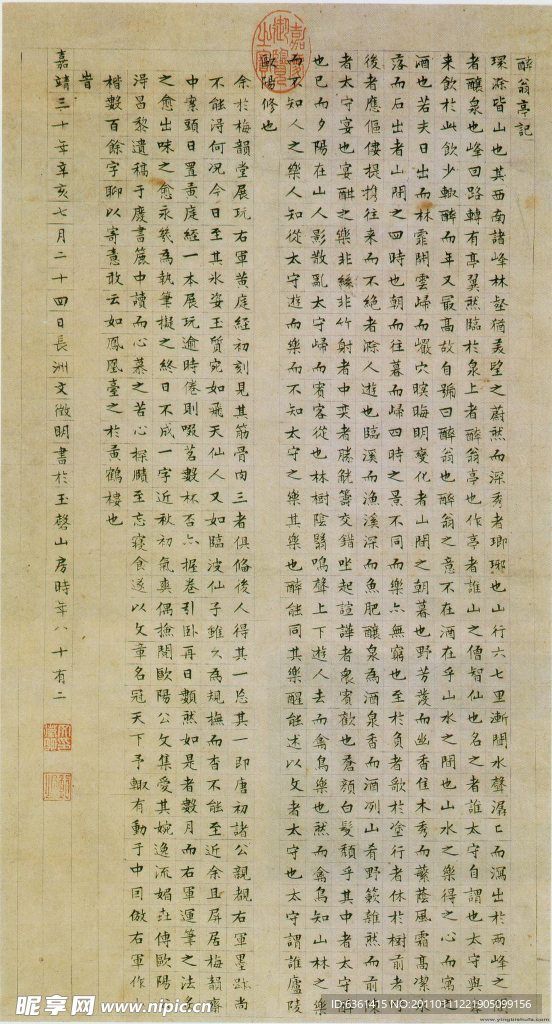 醉翁亭記
環滁皆山也其西南諸峰林壑猶美望之蔚然而深秀者瑯琊也山行六七里漸聞水聲潺〻而瀉出於兩峰之間
者釀泉也峰回路轉有亭翼然臨於泉上者醉翁亭也作亭者誰山之僧智仙也名之者誰太守自謂也太守與客
來飲於此飲少輒醉而年又最高故自號曰醉翁也醉翁之意不在酒在乎山水之間也山水之樂得之心而寓
酒也若夫日出而林霏開雲歸而巖穴暝晦明變化者山間之朝暮也野芳發而幽香佳木秀而繁蔭風霜高潔水
落而石出者山間之四時也朝而往暮而歸四時之景不同而樂亦無窮也至於負者歌於塗行者休於樹前者
後者應傴僂提攜往來而不絕者滁人遊也臨溪而漁溪深而魚肥釀泉為酒泉香而酒冽山肴野蔌雜然而前陳
者太守宴也宴酣之樂非絲非竹射者中奕者勝觥籌交錯坐起諠譁者眾賓歡也蒼顏白髮頹乎其中者太守
也已而夕陽在山人影散亂太守歸而賓客從也林樹陰翳鳴聲上下遊人去而禽鳥樂也然而禽鳥知山林之樂
而不知人之樂人知從太守遊而樂而不知太守之樂其樂也醉能同其樂醒能述以文者太守也太守謂誰廬陵
歐陽修也
余於梅韻堂展玩右軍黃庭經初刻見其筋骨肉三者俱備後人得其一忘其一即唐初諸公親覩右軍墨跡尚
不能得何況今日至其冰姿玉質宛如飛天仙人又如臨波仙子雖久為規橅而杳不能至近余且屏居梅韻齋
中案頭日置黃庭經一本展玩逾時倦則啜茗數杯否亦握卷引臥再日數然如是者數月而右軍運筆之法
之愈出味之愈永幾為執筆擬之終日不成一字近秋初氣爽偶撿閱歐陽公文集愛其婉逸流媚並傳歐陽
得昌黎遺稿于慶書簏中讀而心慕之苦心探賾至忘寢食遂以文章名冠天下予輒有動于中因倣右軍作
楷數百餘字聊以寄意敢云如鳳凰臺之於黃鶴樓也
旹
嘉靖三十年辛亥七月二十四日長洲文徵明書於玉磬山房時年八十有二
昵享网 www.nipic.cn
ID:6361415 NO:20110111221905099156